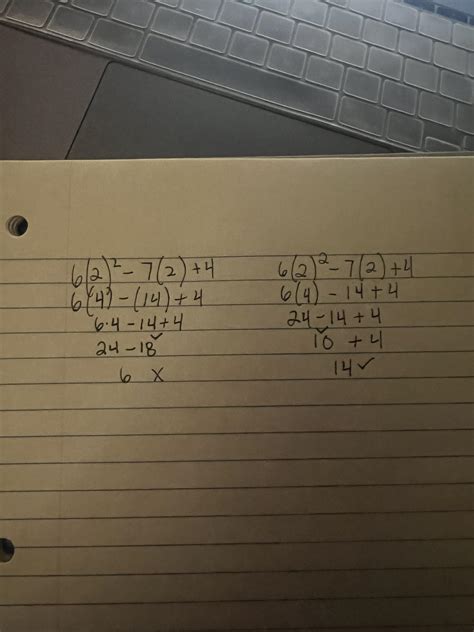 6(2)² - 7(2) + 4
6(4) - (14) + 4
6·4 - 14 + 4
24 - 18
6 X
6(2)² - 7(2) + 4
6(4) - 14 + 4
24 - 14 + 4
10 + 4
14 ✓